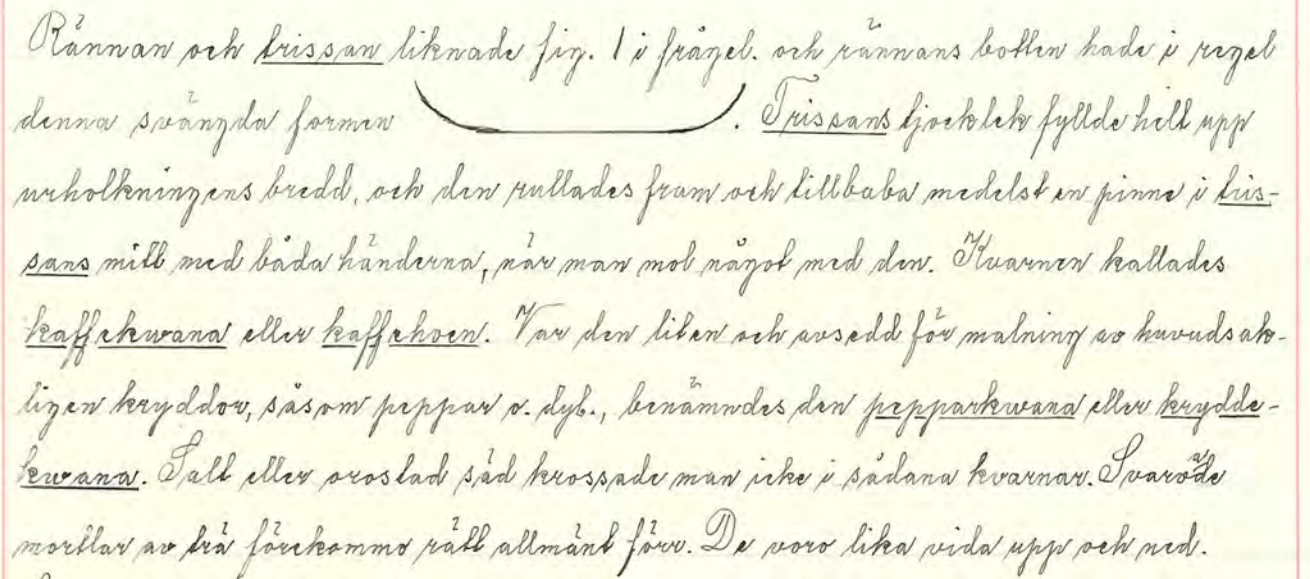 Rännan och trissan liknade fig. 1 i frågel. och rännans botten hade i regel
denna svängda formen . Trissans tjocklek fyllde helt upp
urholkningens bredd, och den rullades fram och tillbaba medelst en pinne i tris-
sans mitt med båda händerna, när man mol något med den. Kvarnen kallades
kaffekwana eller kaffehoen. Var den liten och avsedd för malning av huvudsak-
ligen kryddor, såsom peppar o. dyl., benämndes den pepparkwana eller krydde-
kwana. Salt eller orostad säd krossade man icke i sådana kvarnar. Svarvade
mortlar av trä förekommo rätt allmänt förr. De voro lika vida upp och ned.